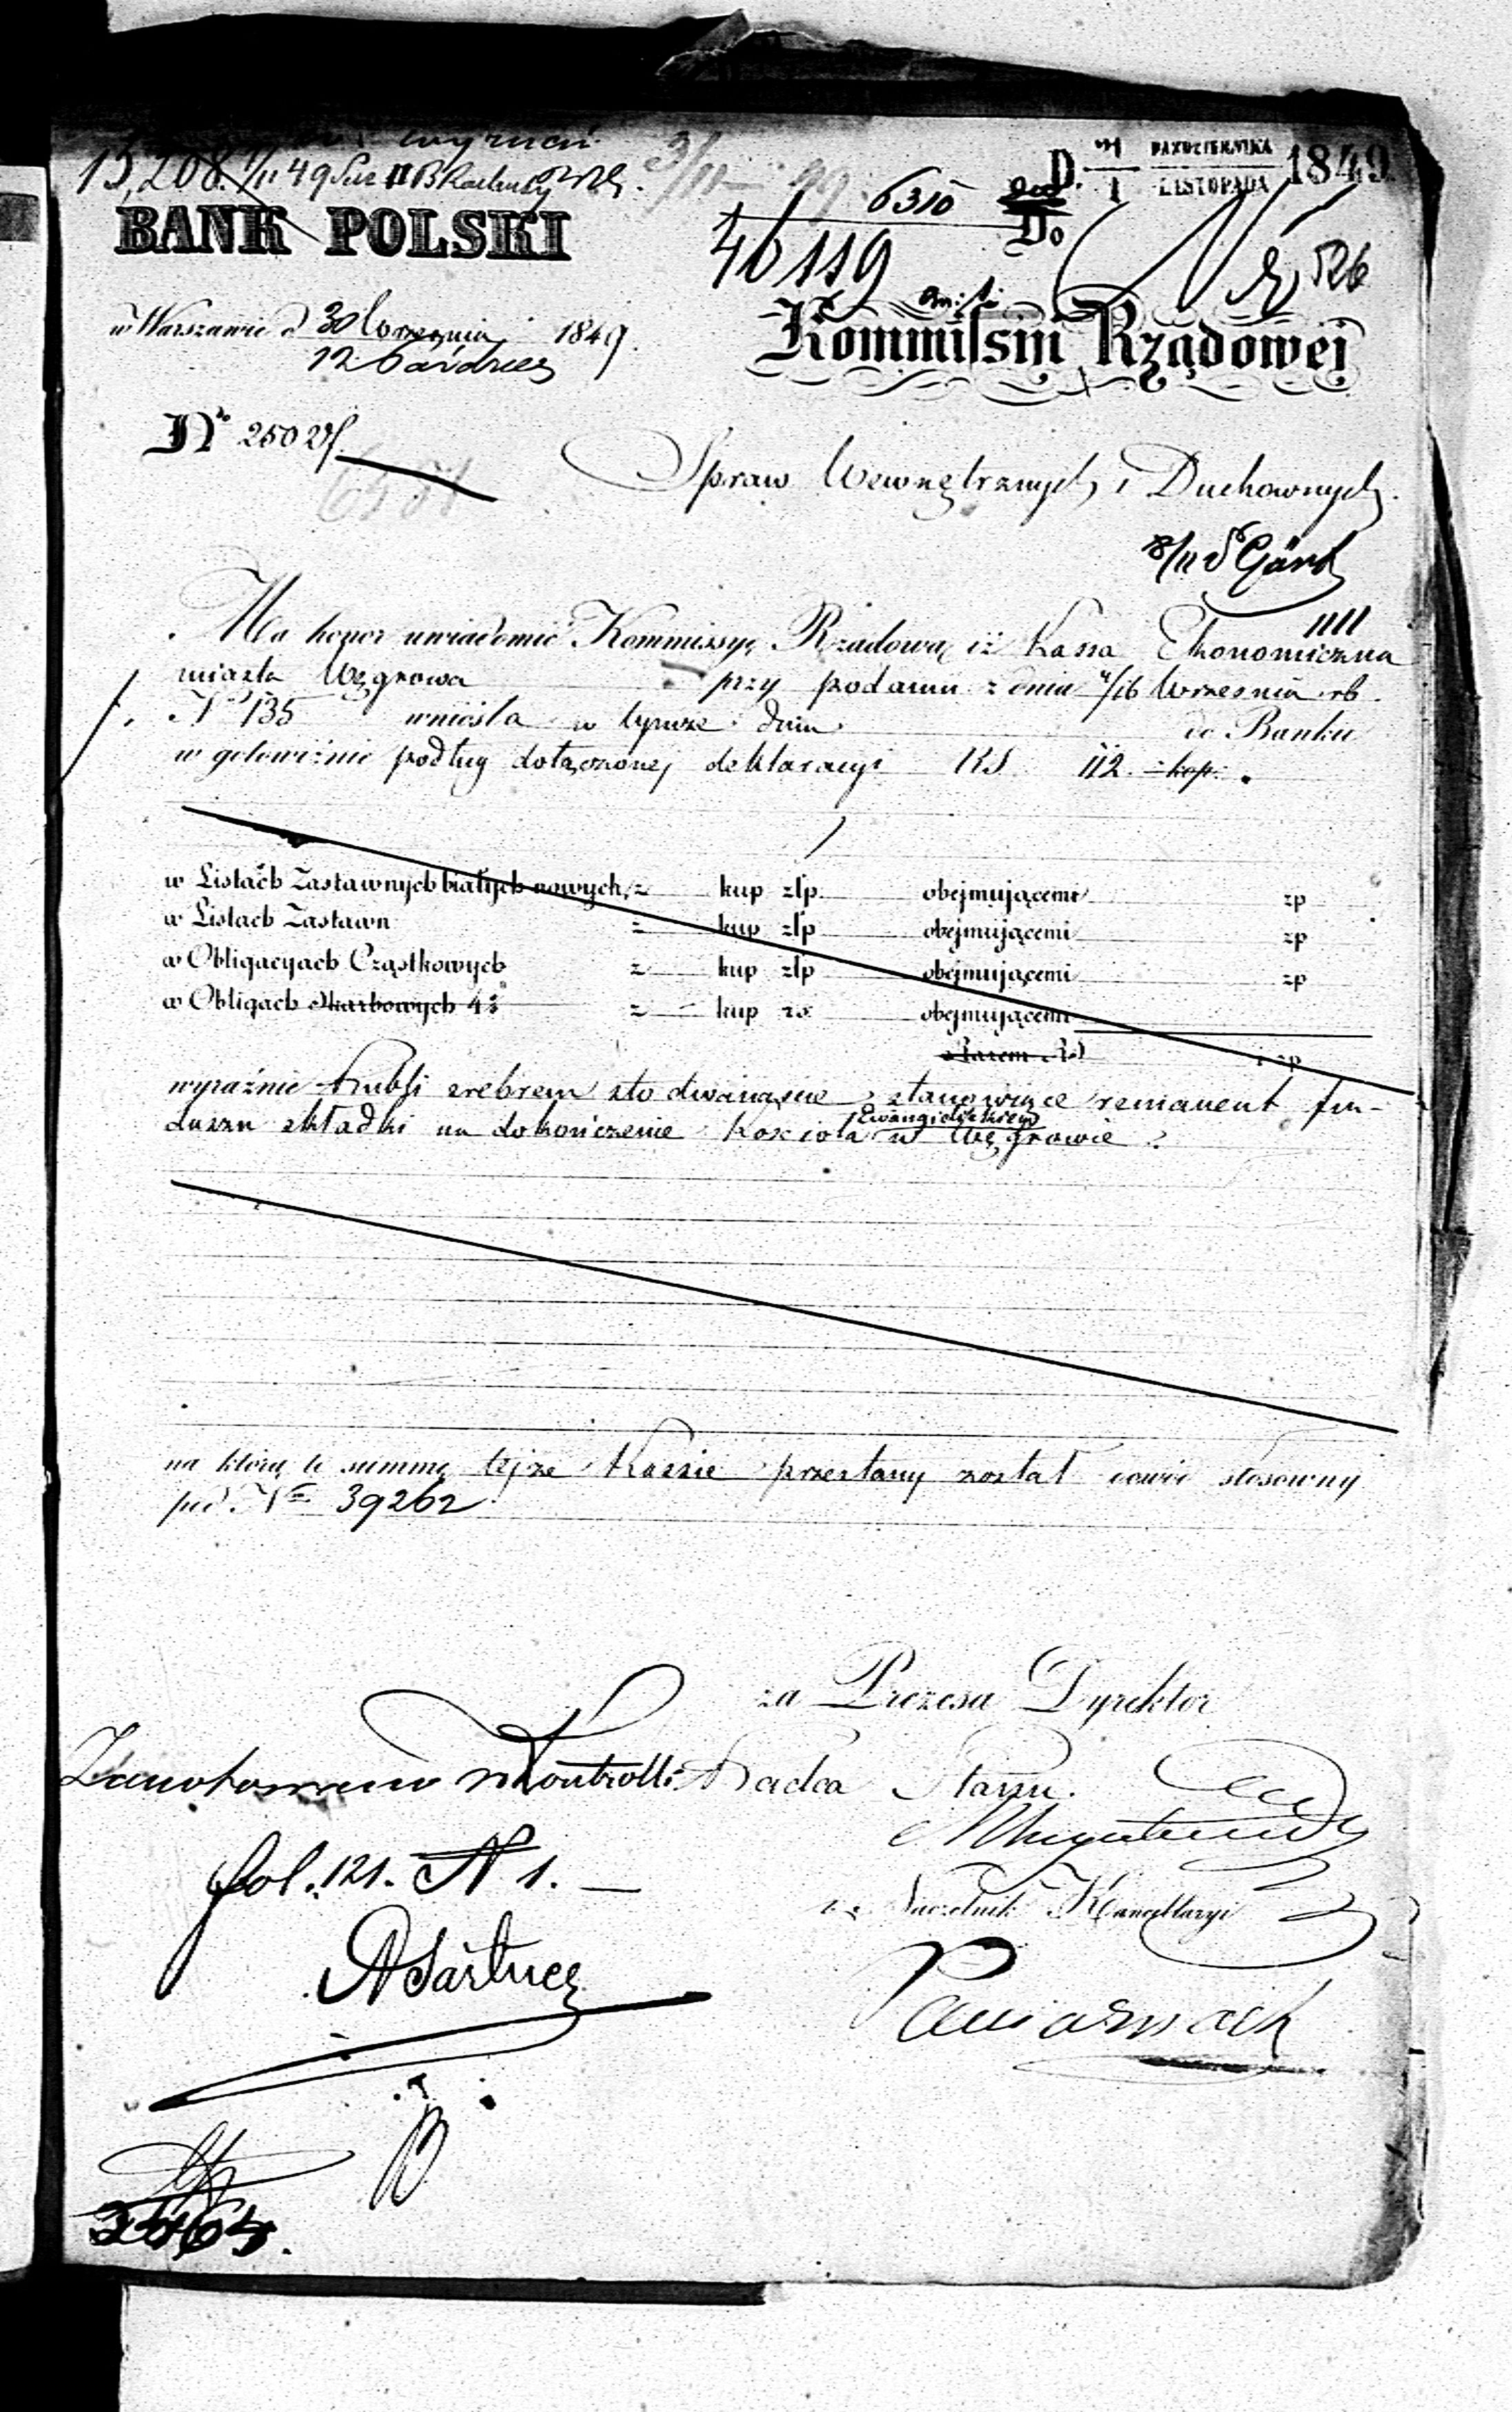 15,208. 1/11 49
3/11 49
6310
D. 3/1 PAZDZIERNIKA / LISTOPADA 1849
BANK POLSKI
46119
Do
526
w Warszawie d 30 Września 1849.
12 Paźdrier
Kommissyi Rządowej
No 25021/.
Spraw Wewnętrznych i Duchownych.
Ma honor uwiadomić Kommissyę Rządową iż Kassa Ekonomiczna
miasta Węgrowa przy podaniu z dnia 4/16 Września rb.
No 135 wniosła w tymże dniu do Banku
w gotowiźnie podług dołączonej deklaracyi RS. 112. kop.
w Listach Zastawnych białych nowych, z kup złp. obejmującemi zp
w Listach Zastawn z kup złp obejmującemi zp
w Obligacyach Cząstkowych z kup złp obejmującemi zp
w Obligach Skarbowych 4 z kup rs. obejmującemi
Razem RS zp
wyraźnie rubli srebrem sto dwanaście stanowiące remanent fun-
duszu składki na dokończenie Kościoła Ewangielickiego w Węgrowie
na którą to summę tejże Kassie przesłany został dowód stosowny
pod No 39262
za Prezesa Dyrektor
Zanotowano w Kontrolli Radca Stanu.
fol. 121. N 1.
Naczelnik Kancellaryi